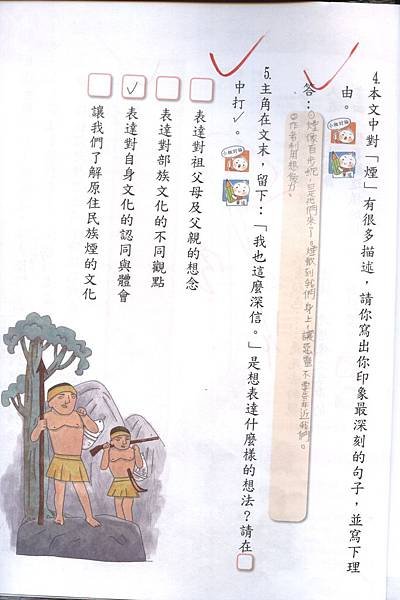 4.本文中對「煙」有很多描述,請你寫出你印象最深刻的句子,並寫下理
由。
答:①煙像百步蛇,是祂們來了。煙散到我們身上,讓惡靈不要靠近我們。
②作者利用想像力。
5.主角在文末,留下:「我也這麼深信。」是想表達什麼樣的想法?請在□
中打✓。
□表達對祖父母及父親的想念
□表達對部族文化的不同觀點
☑表達對自身文化的認同與體會
□讓我們了解原住民族煙的文化